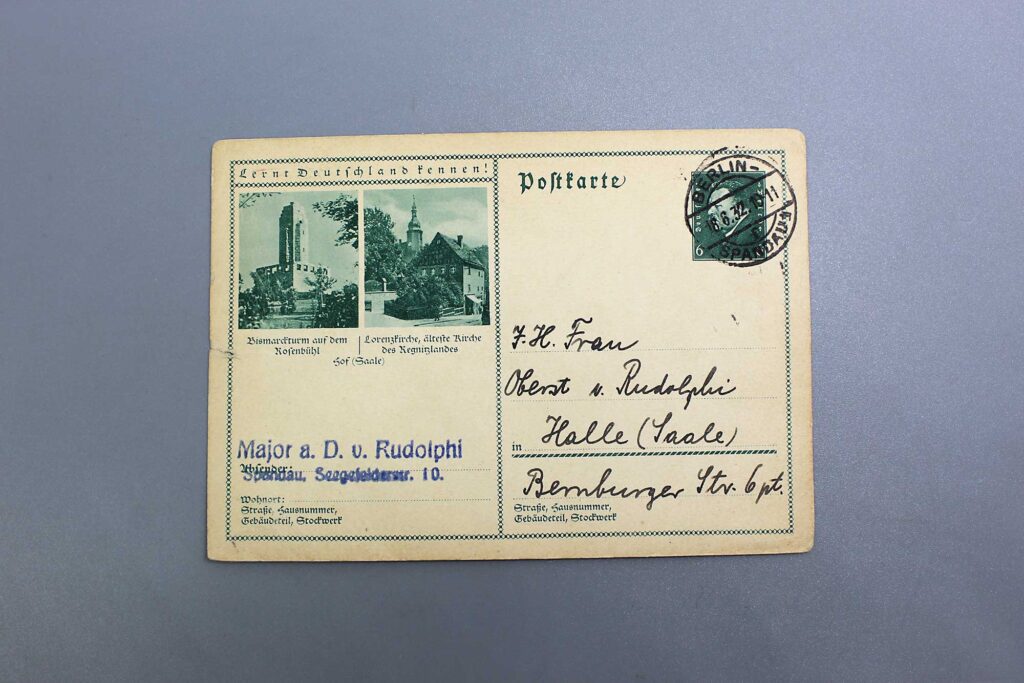 Lernt Deutschland kennen!
Bismarckturm auf dem
Rosenbühl
Lorenzkirche, älteste Kirche
des Regnitzlandes
Hof (Saale)
Major a. D. v. Rudolphi
Absender:
Spandau, Seegefelderstr. 10.
Wohnort:
Straße, Hausnummer,
Gebäudeteil, Stockwerk
Postkarte
BERLIN-
16.6.32.
SPANDAU 1
6
J. H. Frau
Oberst v. Rudolphi
in Halle (Saale)
Bernburger Str. 6 pt.
Straße, Hausnummer,
Gebäudeteil, Stockwerk